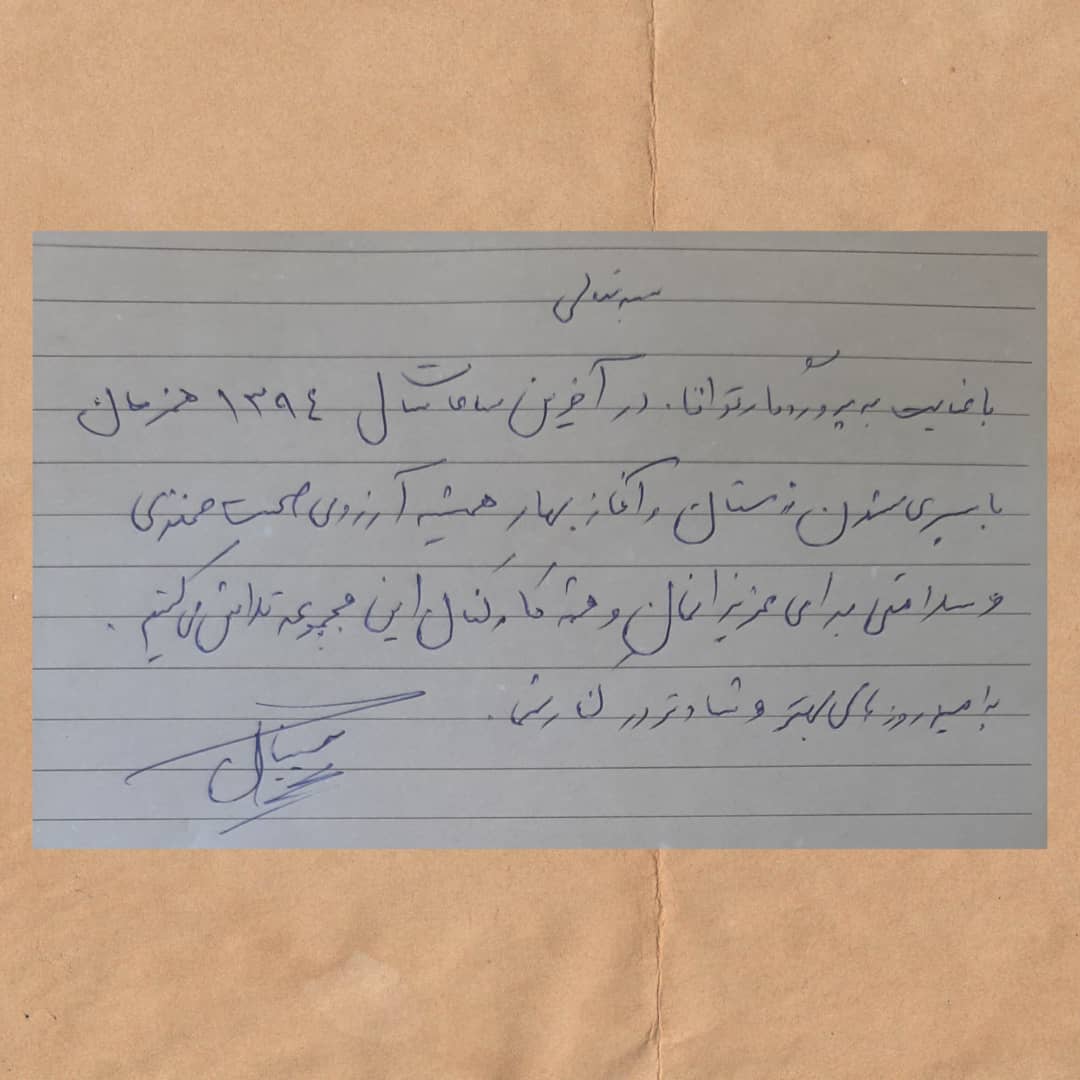 بسمه تعالی
با عنایت به پروردگار توانا، در آخرین ساعات سال ۱۳۹۴ همزمان
با سپری شدن زمستان و آغاز بهار همیشه آرزوی صحت
و سلامتی برای عزیزانمان و همه کارکنان این مجموعه تلاش می کنیم.
به امید روزهای بهتر و شادتر در کنار شما.